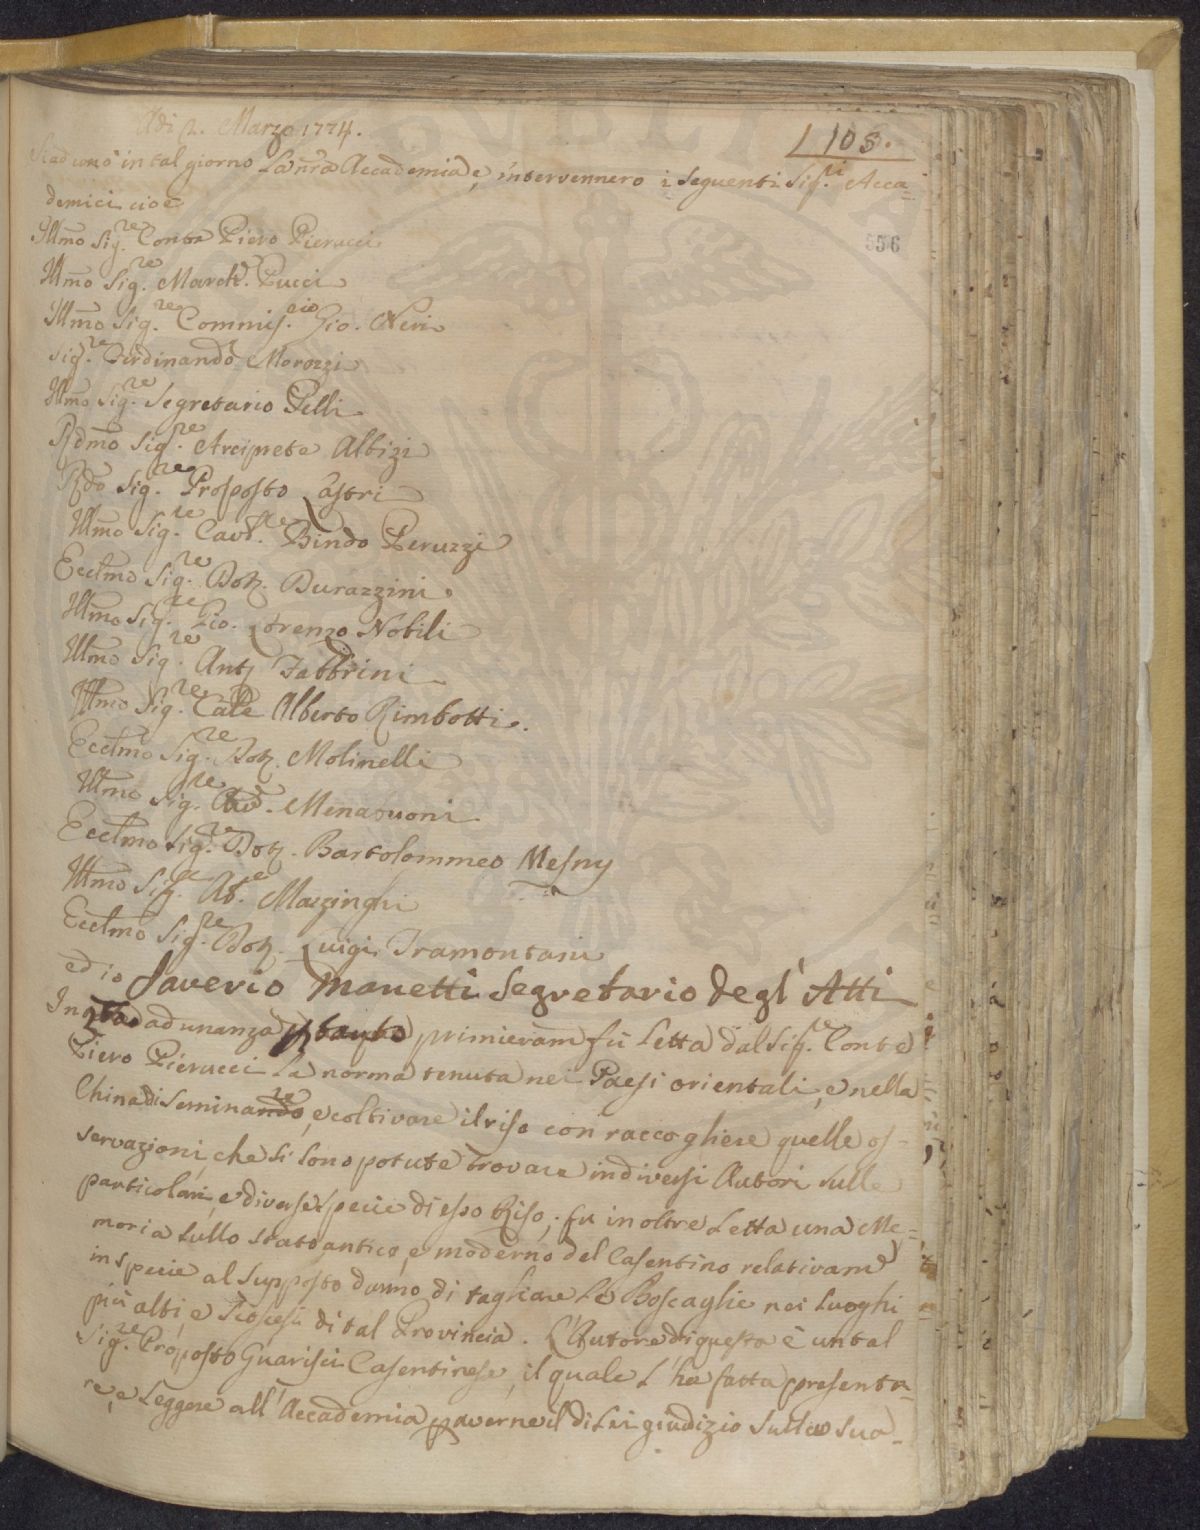 Adi 2. Marzo 1774.
103.
Si adunò in tal giorno La nr̃a Accademia e, intervennero i seguenti Sig.ri Acca-
demici cioè
556
Illmo Sig.re Conte Piero Pierucci
Illmo Sig.re March. Pucci
Illmo Sig.re Commis.rio Gio. Neri
Sig.re Ferdinando Morozzi
Illmo Sig.re Segretario Pelli
Rdmo Sig.re Arciprete Albizi
Rdo Sig.re Proposto Lastri
Illmo Sig.re Cav.re Bindo Peruzzi
Ecclmo Sig.re Dott. Durazzini
Illmo Sig.re Gio. Lorenzo Nobili
Illmo Sig.re Ant. Fabbrini
Illmo Sig.re Alberto Rimbotti.
Ecclmo Sig.re Dott. Molinelli
Illmo Sig.re Menabuoni
Ecclmo Sig.re Dott. Bartolommeo Mesny
Illmo Sig.re Ab.e Mazzinghi
Ecclmo Sig.re Dott. Luigi Tramontani
ed io Saverio Manetti Segretario degl' Atti
In adunanza primieram fù Letta dal Sig.re Conte
Piero Pierucci La norma tenuta nei Paesi orientali, e nella
China di Seminare, e coltivare il riso con raccogliere quelle os-
servazioni, che si sono potute trovare in diversi Autori sulle
particolari, e diverse specie di esso Riso; fu inoltre Letta una Me-
moria sullo stato antico, e moderno del Casentino relativam
in specie al supposto danno di tagliare Le Boscaglie nei Luoghi
più alti, e scoscesi di tal Provincia. L'Autore di questa è un tal
Sig.re Proposto Guarisci Casentinese, il quale L'ha fatta presenta-
re, e Leggere all'Accademia p averne il di Lei giudizio sulla sua-